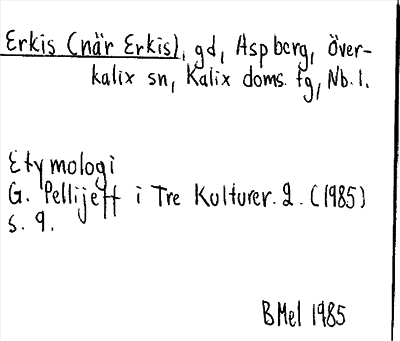 Erkis (när Erkis), gd, Aspberg, Över-
kalix sn, Kalix doms. tg, Nb. l.
Etymologi
G. Pellijeff i Tre Kulturer. 2. (1985)
s. 9.
BMel 1985